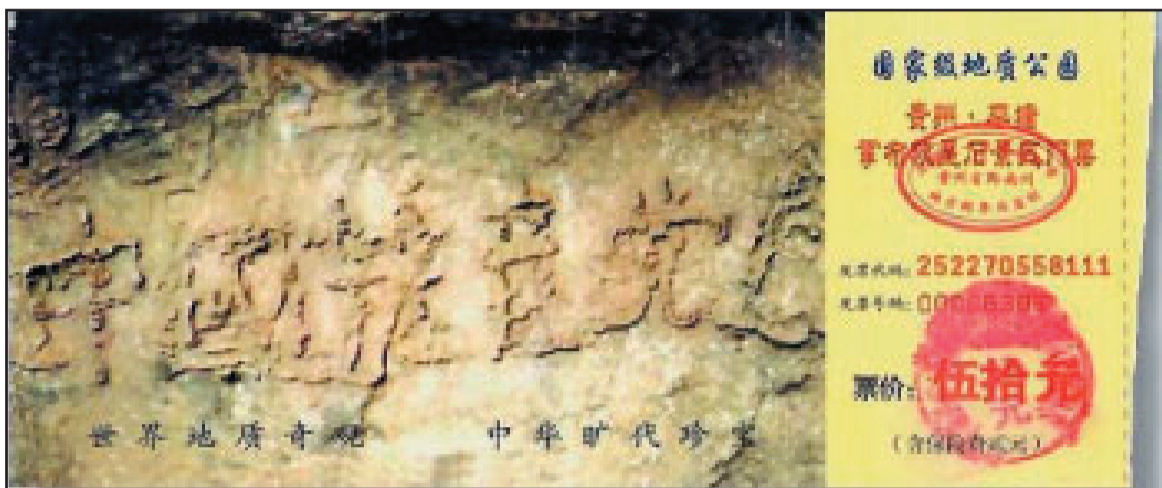 中國共产党亡
世界地质奇观 中华旷代珍宝
国家级地质公园
贵州·平塘
掌布 石景区门票
发票代码: 252270558111
发票号码:
票价: 伍拾元
(含保险费贰元)